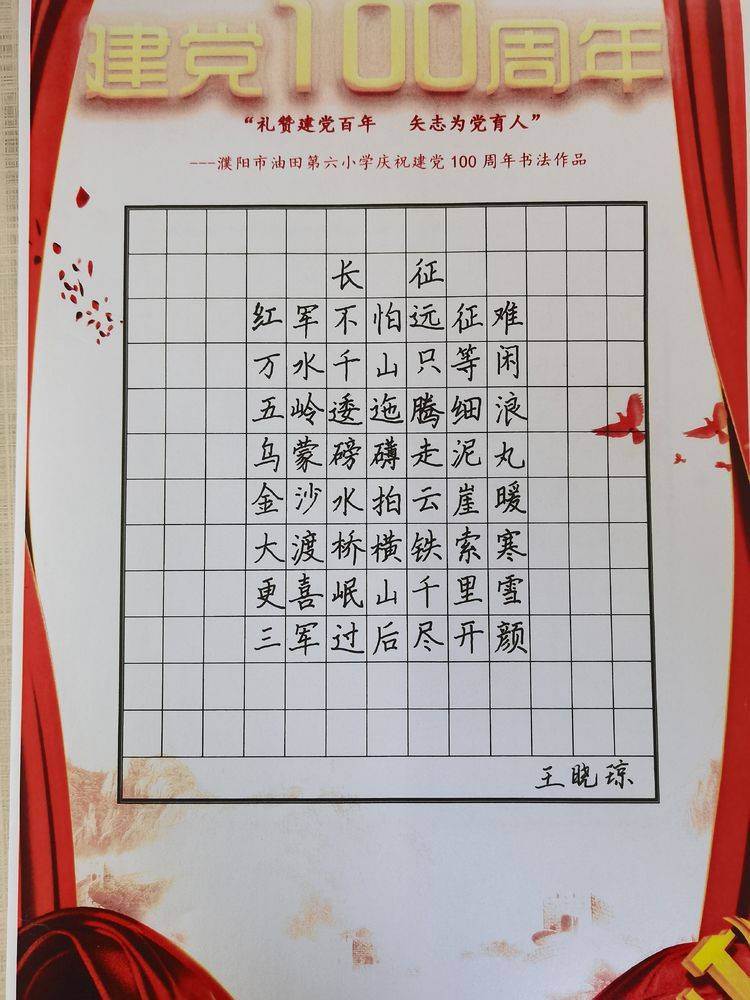 建党100周年
“礼赞建党百年 矢志为党育人”
---濮阳市油田第六小学庆祝建党 100 周年书法作品
长 征
红军不怕远征难
万水千山只等闲
五岭逶迤腾细浪
乌蒙磅礴走泥丸
金沙水拍云崖暖
大渡桥横铁索寒
更喜岷山千里雪
三军过后尽开颜
王晓琼